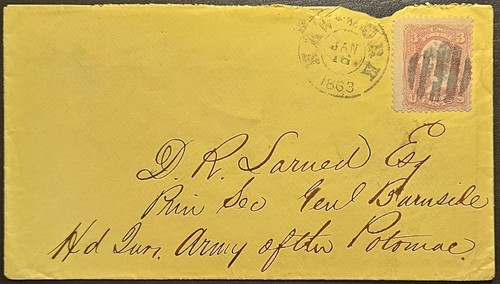 NEW-YORK
JAN
16
1863
3 3
D. R. Larned Esq
Prin Sec Genl Burnside
Hd Qurs. Army of the Potomac.